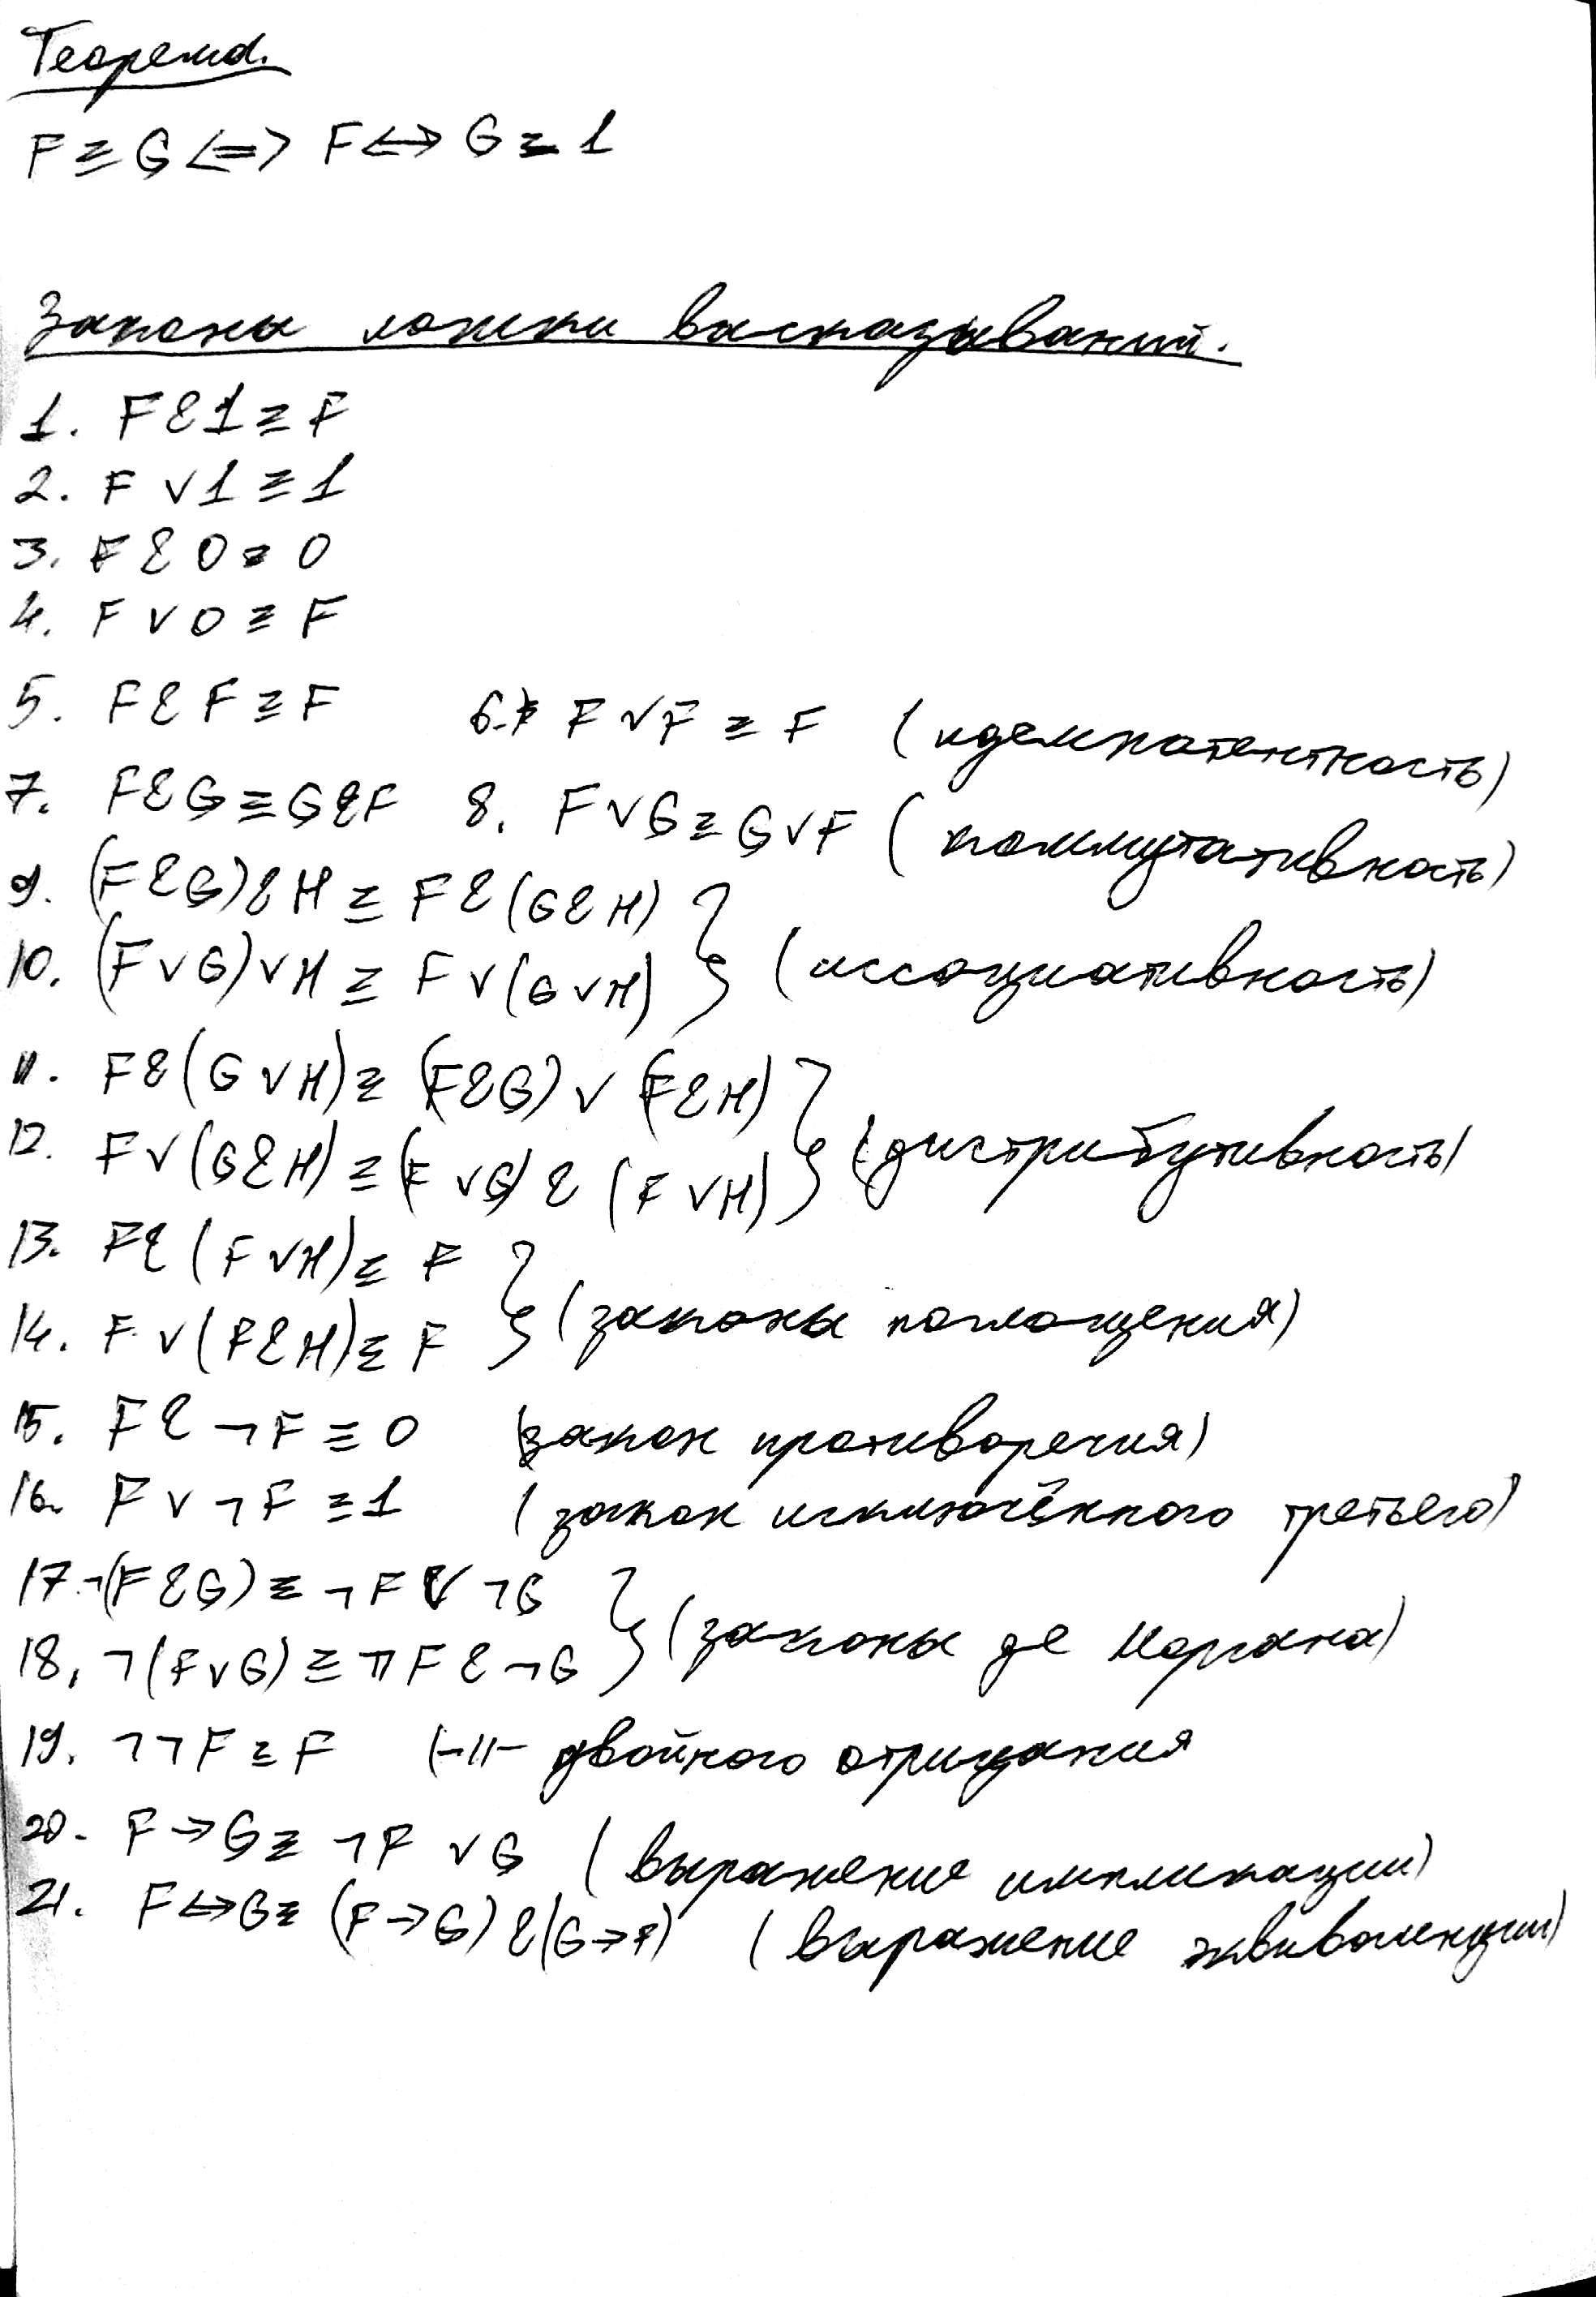 Теорема.
F ≡ G <=> F <-> G ≡ 1
Законы логики высказываний.
1. F & 1 ≡ F
2. F ∨ 1 ≡ 1
3. F & 0 ≡ 0
4. F ∨ 0 ≡ F
5. F & F ≡ F 6. F ∨ F ≡ F (идемпотентность)
7. F & G ≡ G & F 8. F ∨ G ≡ G ∨ F (коммутативность)
9. (F & G) & H ≡ F & (G & H)
10. (F ∨ G) ∨ H ≡ F ∨ (G ∨ H) (ассоциативность)
11. F & (G ∨ H) ≡ (F & G) ∨ (F & H)
12. F ∨ (G & H) ≡ (F ∨ G) & (F ∨ H) (дистрибутивность)
13. F & (F ∨ H) ≡ F
14. F ∨ (F & H) ≡ F (законы поглощения)
15. F & ¬F ≡ 0 (закон противоречия)
16. F ∨ ¬F ≡ 1 (закон исключённого третьего)
17. ¬(F & G) ≡ ¬F ∨ ¬G
18. ¬(F ∨ G) ≡ ¬F & ¬G (законы де Моргана)
19. ¬¬F ≡ F (-||- двойного отрицания
20. F -> G ≡ ¬F ∨ G (выражение импликации)
21. F <-> G ≡ (F -> G) & (G -> F) (выражение эквиваленции)